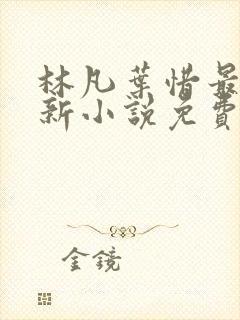 林凡葉惜最
新小說免費
金鏡